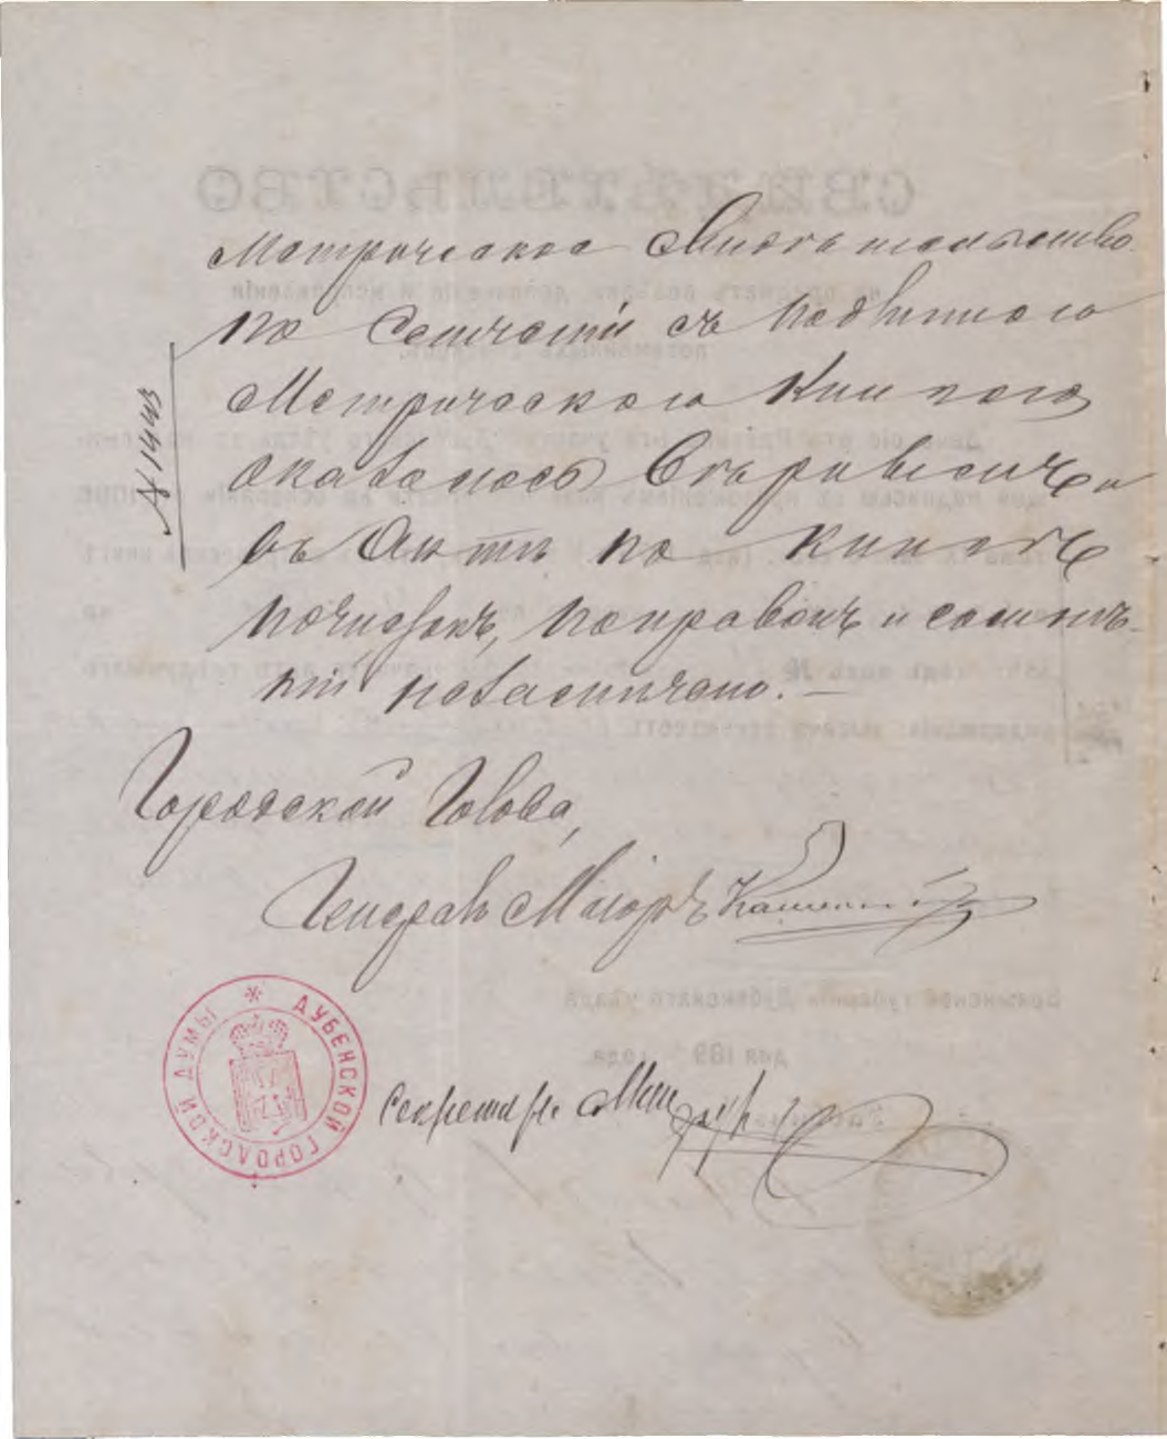 Метрическое Свидѣтельство
по Сличеніи съ подлинною
Метрическою Книгою
оказалось Съ
въ Актѣ по книгѣ
почистокъ, поправокъ и сомнѣ-
ній незамѣчено. —
№ 1443
Городской Голова,
Генералъ Маіоръ
Секретарь
* ДУБЕНСКОЙ ГОРОДСКОЙ ДУМЫ